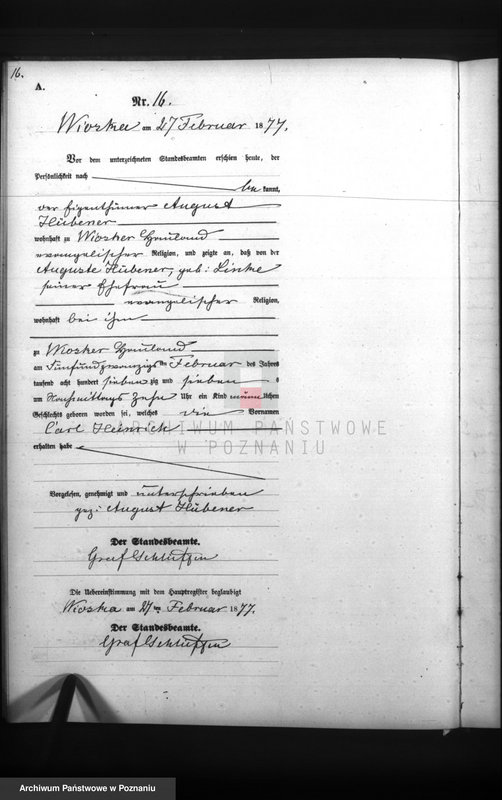 16.
A.
Nr. 16.
Wioska am 27 Februar 1877.
Vor dem unterzeichneten Standesbeamten erschien heute, der
Persönlichkeit nach
be kannt,
der Eigenthümer August
Hübener
wohnhaft zu Wiosker Hauland
evangelischer Religion, und zeigte an, daß von der
Auguste Hübener, geb: Linke
seiner Ehefrau
evangelischer Religion,
wohnhaft bei ihm
zu Wiosker Hauland
am Fünfundzwanzigsten Februar des Jahres
tausend acht hundert sieben zig und sieben
um Nachmittags Zehn Uhr ein Kind männlichen
Geschlechts geboren worden sei, welches die Vornamen
Carl Heinrich
erhalten habe
ARCHIWUM PAŃSTWOWE
W POZNANIU
Vorgelesen, genehmigt und unterschrieben
gez: August Hübener
Der Standesbeamte.
Graf
Die Uebereinstimmung mit dem Hauptregister beglaubigt
Wioska am 27ten Februar 1877.
Der Standesbeamte.
Graf
Archiwum Państwowe w Poznaniu